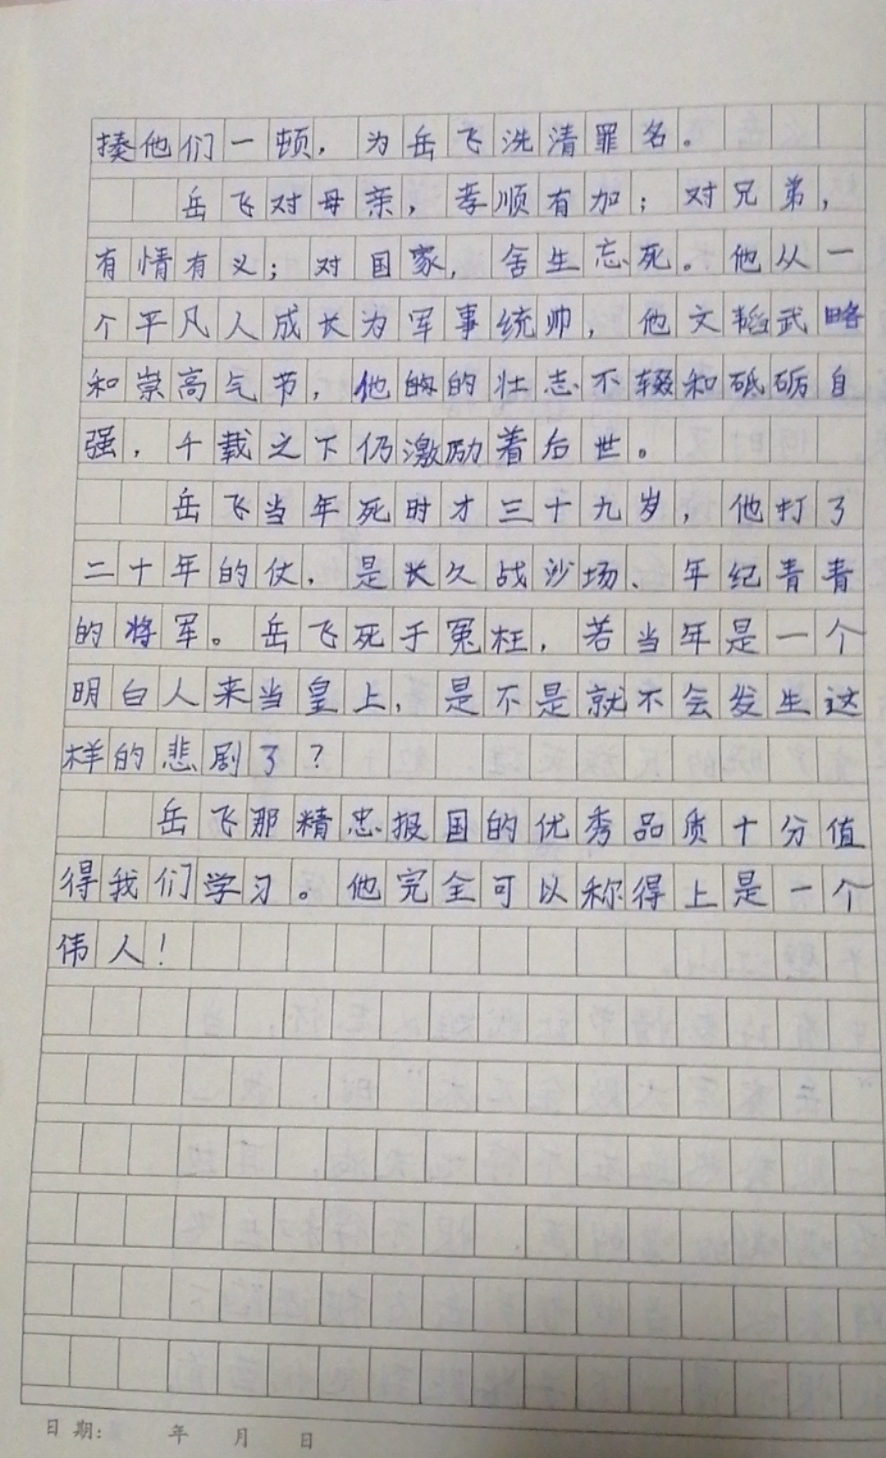 揍他们一顿，为岳飞洗清罪名。
岳飞对母亲，孝顺有加；对兄弟，
有情有义；对国家，舍生忘死。他从一
个平凡人成长为军事统帅，他文韬武略
和崇高气节，他的的壮志不辍和砥砺自
强，千载之下仍激励着后世。
岳飞当年死时才三十九岁，他打了
二十年的仗，是长久战沙场、年纪青青
的将军。岳飞死于冤枉，若当年是一个
明白人来当皇上，是不是就不会发生这
样的悲剧了？
岳飞那精忠报国的优秀品质十分值
得我们学习。他完全可以称得上是一个
伟人！
日期：　年　月　日